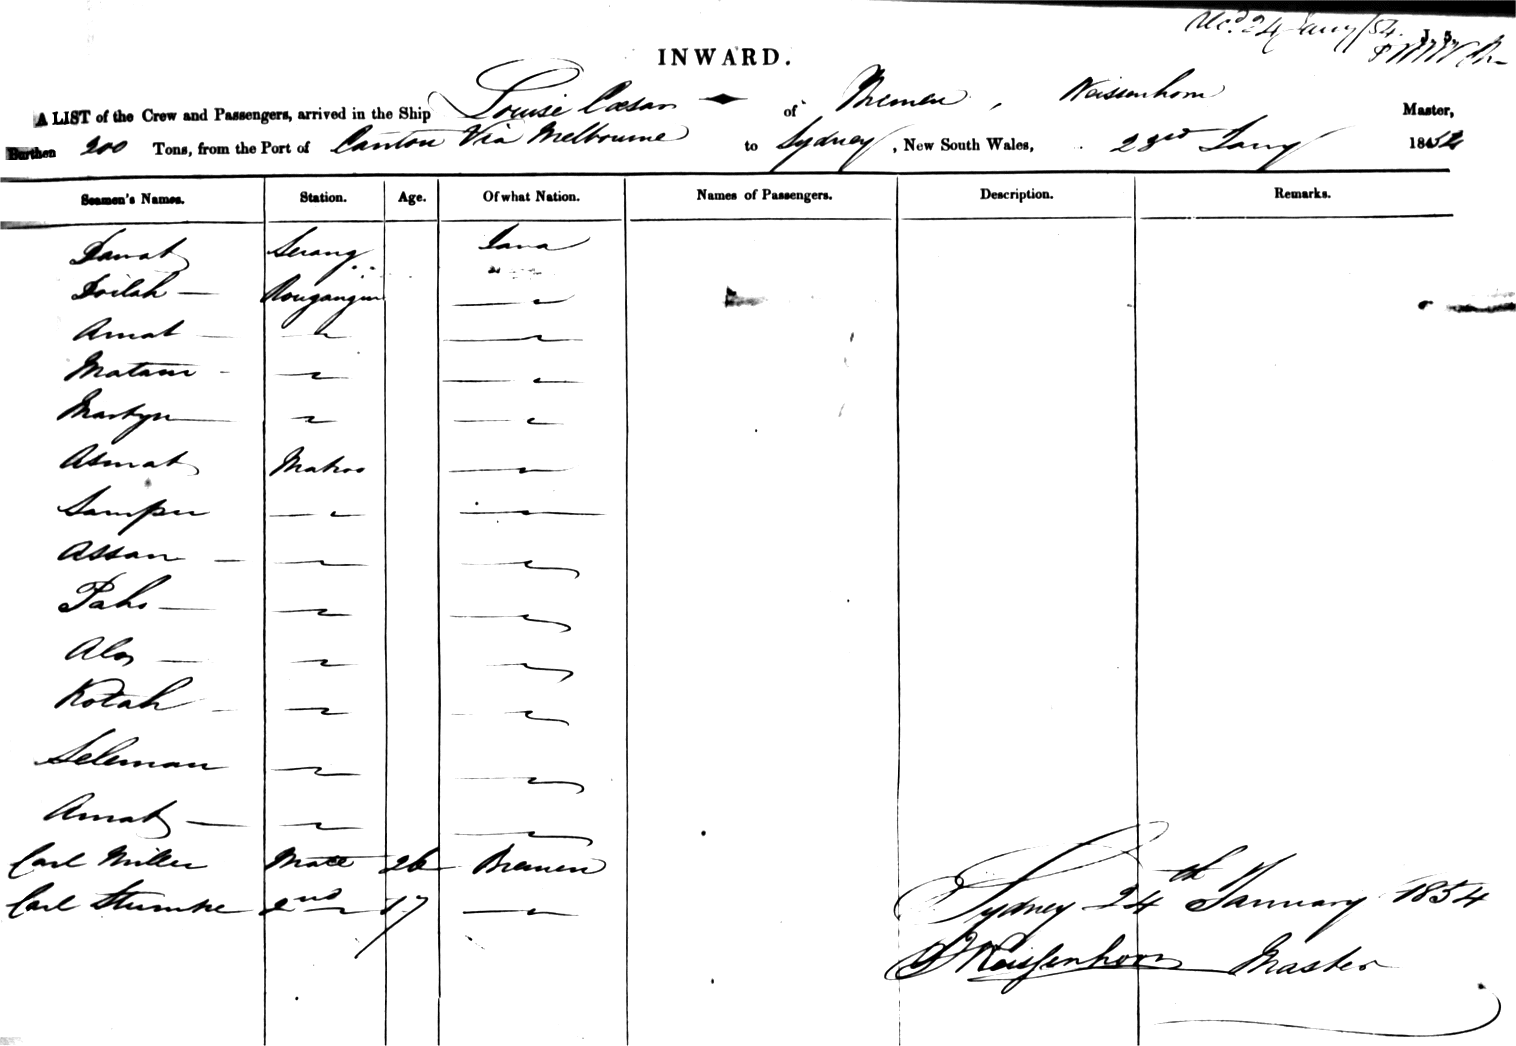 Recd 24 Jany /54.
INWARD.
A LIST of the Crew and Passengers, arrived in the Ship Louise Cæsar of Bremen, Weissenhorn Master,
Burthen 200 Tons, from the Port of Canton Via Melbourne to Sydney, New South Wales, 23rd Jany 1854
Seamen's Names. Station. Age. Of what Nation. Names of Passengers. Description. Remarks.
Serang Java
Doilah —
Amat — "
Matam - "
Martyn "
Asmat Matros "
Sampu "
Assan — "
Paho — "
Alas — "
Kotah — "
Seleman "
Amat — "
Carl Miller Mate 26 Bremen
Carl Stumke 2nd 17 "
Sydney 24th January 1854
Weissenhorn Master